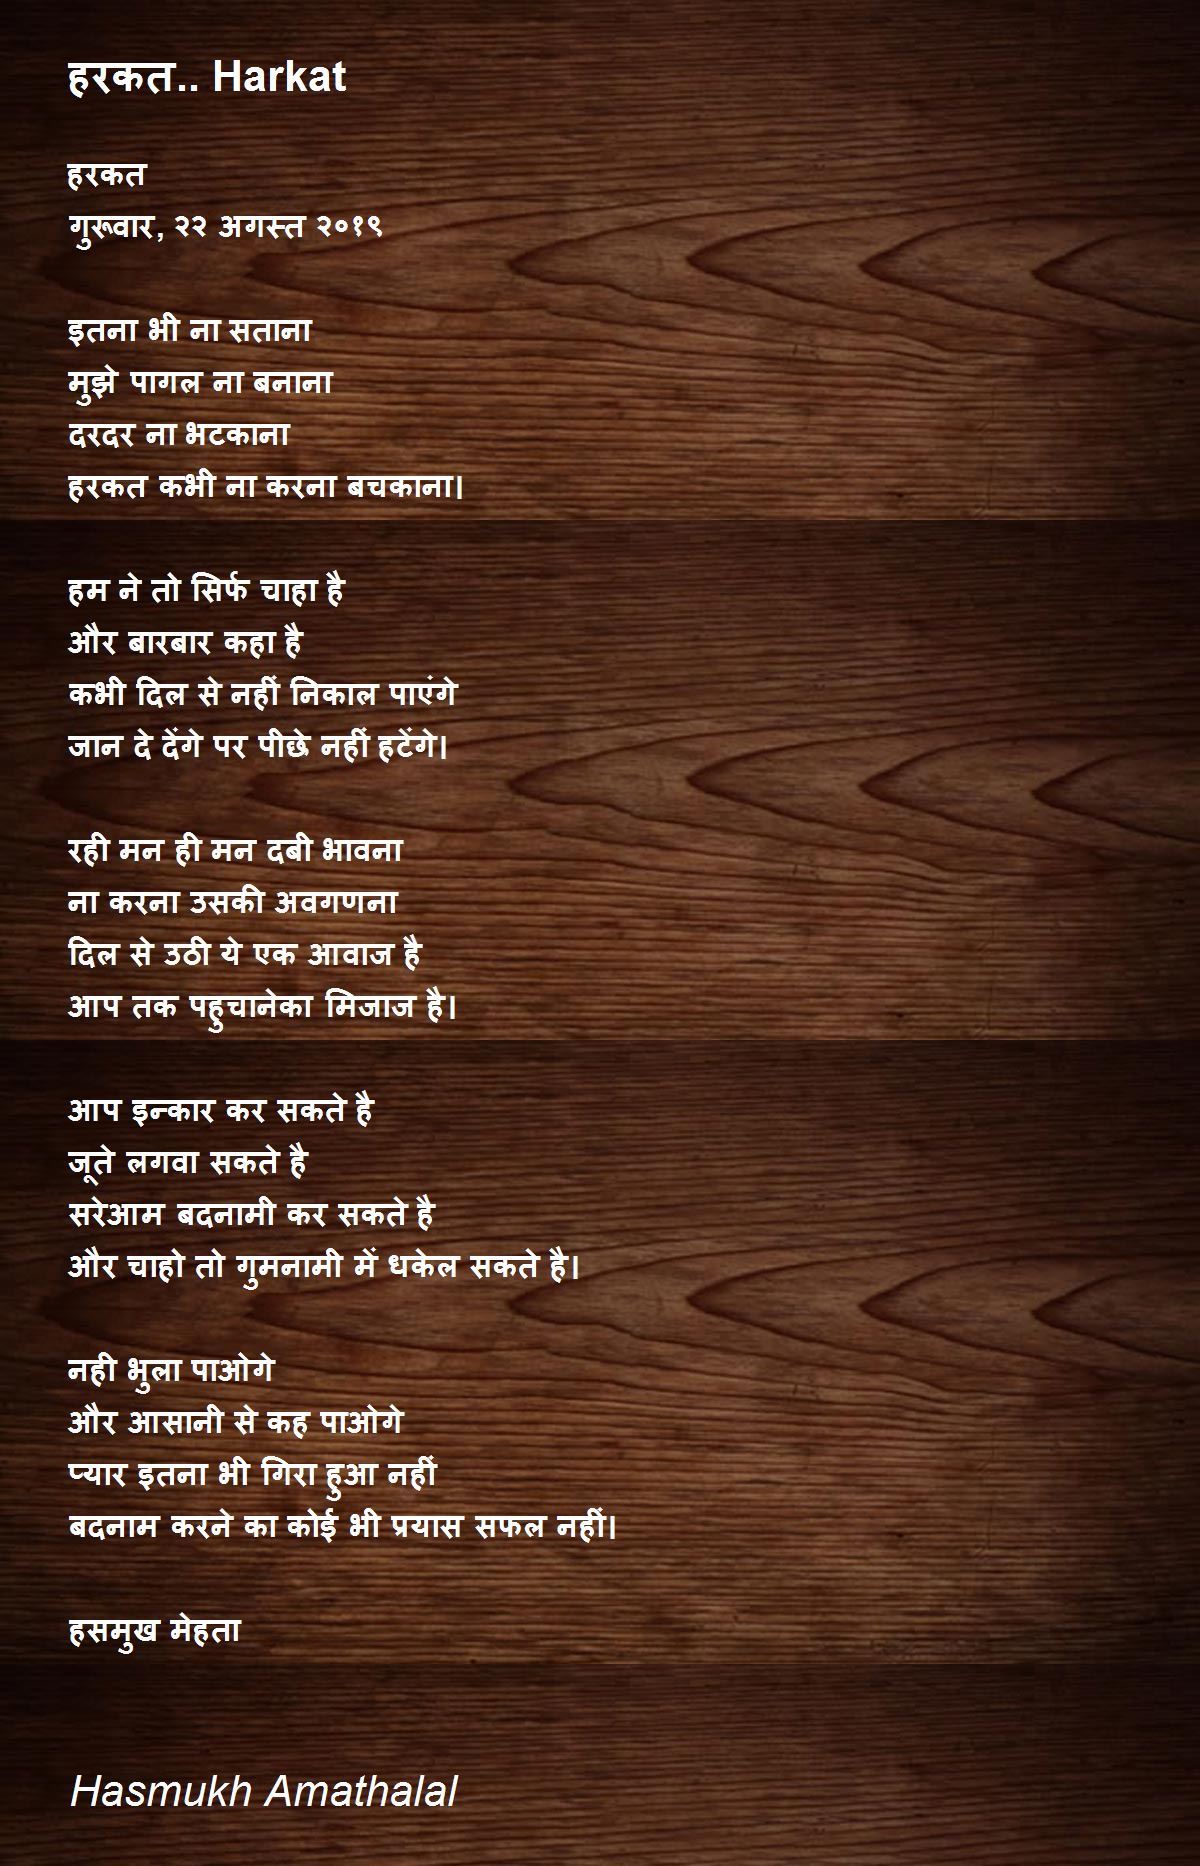 हरकत.. Harkat
हरकत
गुरूवार, २२ अगस्त २०१९
इतना भी ना सताना
मुझे पागल ना बनाना
दरदर ना भटकाना
हरकत कभी ना करना बचकाना।
हम ने तो सिर्फ चाहा है
और बारबार कहा है
कभी दिल से नहीं निकाल पाएंगे
जान दे देंगे पर पीछे नहीं हटेंगे।
रही मन ही मन दबी भावना
ना करना उसकी अवगणना
दिल से उठी ये एक आवाज है
आप तक पहुचानेका मिजाज है।
आप इन्कार कर सकते है
जूते लगवा सकते है
सरेआम बदनामी कर सकते है
और चाहो तो गुमनामी में धकेल सकते है।
नही भुला पाओगे
और आसानी से कह पाओगे
प्यार इतना भी गिरा हुआ नहीं
बदनाम करने का कोई भी प्रयास सफल नहीं।
हसमुख मेहता
Hasmukh Amathalal